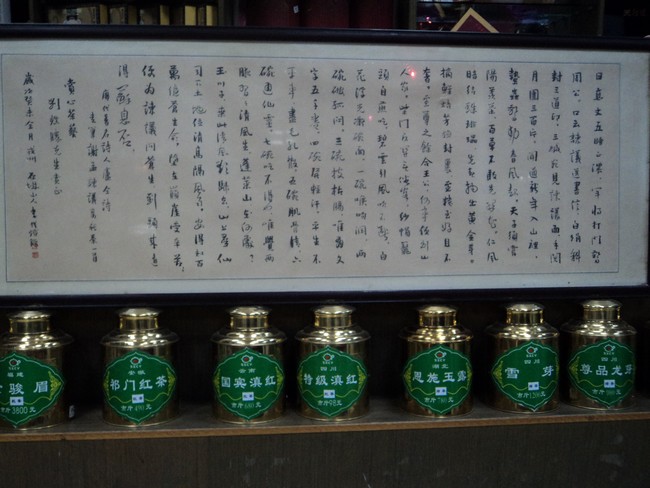 日高丈五睡正浓 军将打门惊
周公 口云谏议送书信 白绢斜
封三道印 开缄宛见谏议面 手阅
月团三百片 闻道新年入山里
蛰虫惊动春风起 天子须尝
阳羡茶 百草不敢先开花 仁风
暗结珠琲瓃 先春抽出黄金芽
摘鲜焙芳旋封裹 至精至好且不
奢 至尊之余合王公 何事便到山
人家 柴门反关无俗客 纱帽笼
头自煎吃 碧云引风吹不断 白
花浮光凝碗面 一碗喉吻润 两
碗破孤闷 三碗搜枯肠 唯有文
字五千卷 四碗发轻汗 平生不
平事 尽向毛孔散 五碗肌骨轻 六
碗通仙灵 七碗吃不得也 唯觉两
腋习习清风生 蓬莱山在何处
玉川子乘此清风欲归去 山上群仙
司下土 地位清高隔风雨 安得知百
万亿苍生命 堕在巅崖受辛苦
便为谏议问苍生 到头还
得苏息否
唐代著名诗人卢仝诗
走笔谢孟谏议寄新茶一首
赏心茶艺
福建
骏眉
市斤3800元
安徽
祁门红茶
市斤490元
云南
国宾滇红
市斤680元
四川
特级滇红
市斤98元
湖北
恩施玉露
市斤760元
四川
雪芽
市斤1200元
四川
尊品龙芽